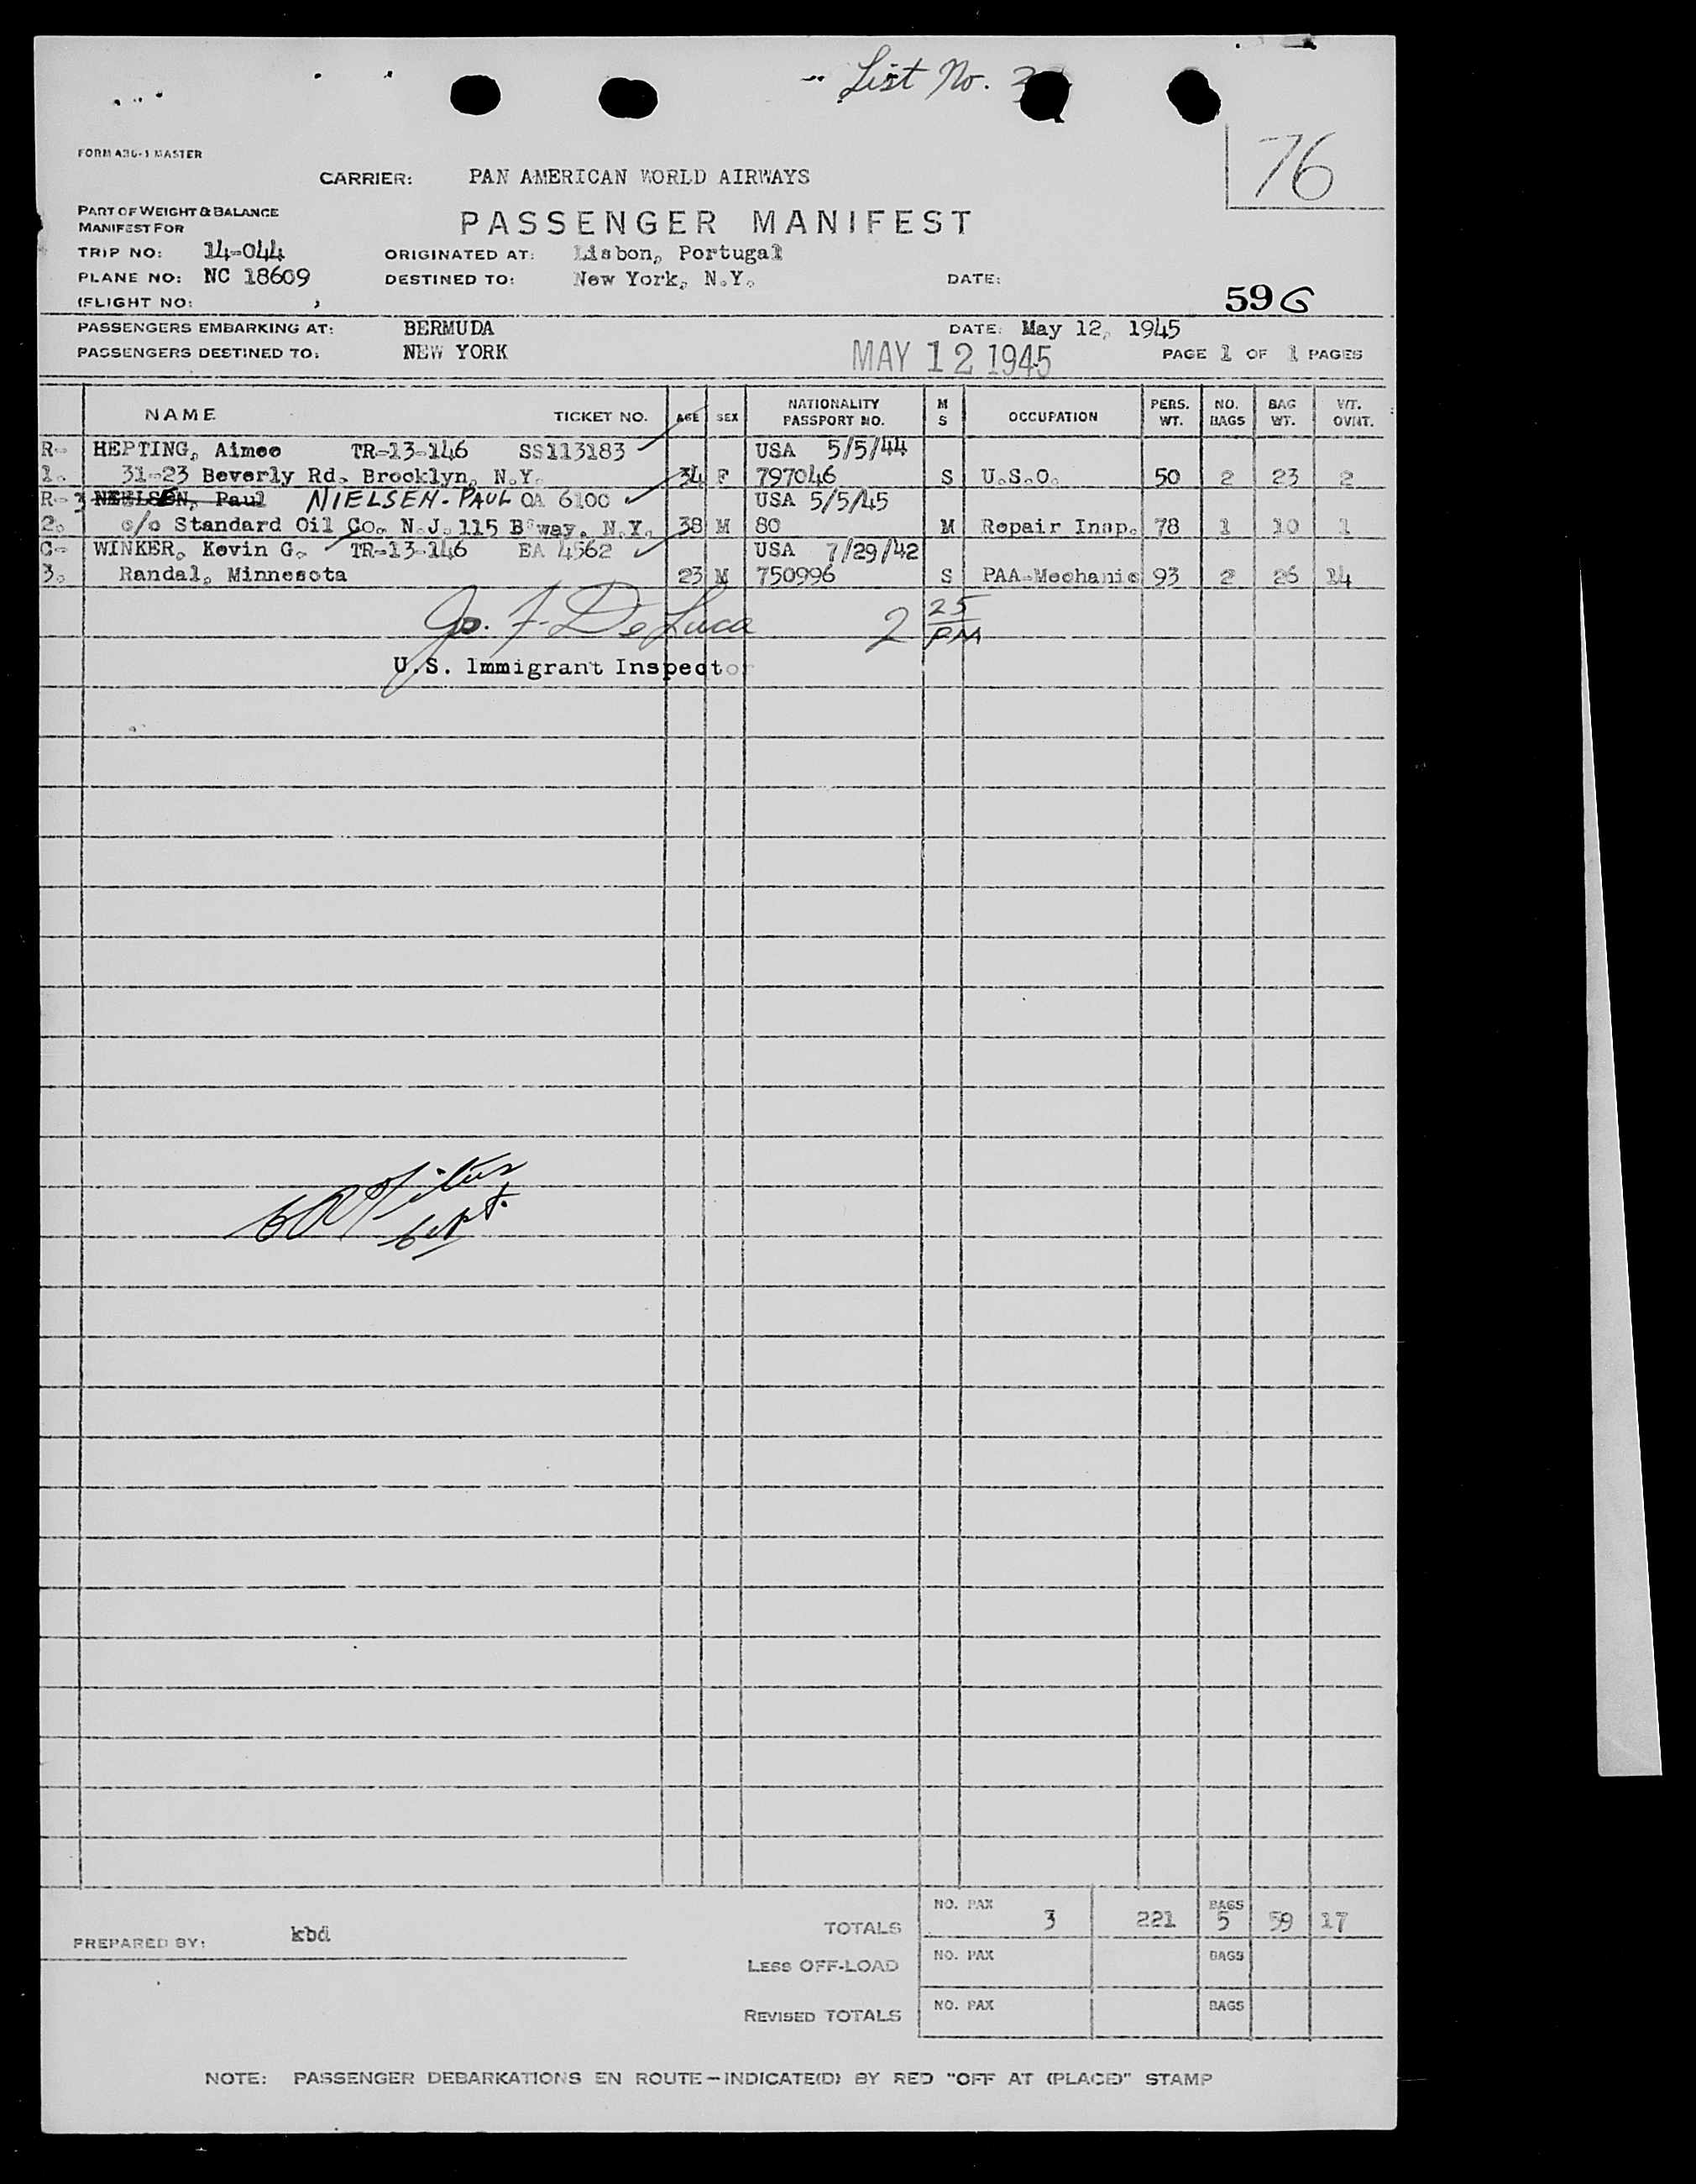 List No.
76
FORM A36-1 MASTER
CARRIER: PAN AMERICAN WORLD AIRWAYS
PART OF WEIGHT & BALANCE
MANIFEST FOR
PASSENGER MANIFEST
TRIP NO: 14-044 ORIGINATED AT: Lisbon, Portugal
PLANE NO: NC 18609 DESTINED TO: New York, N.Y. DATE:
(FLIGHT NO: )
59 G
PASSENGERS EMBARKING AT: BERMUDA DATE: May 12, 1945
PASSENGERS DESTINED TO: NEW YORK MAY 12 1945 PAGE 1 OF 1 PAGES
NAME TICKET NO. AGE SEX NATIONALITY PASSPORT NO. M S OCCUPATION PERS. WT. NO. BAGS BAG WT. WT. OVNT.
R- HEPTING, Aimee TR-13-146 SS113183 USA 5/5/44
1. 31-23 Beverly Rd. Brooklyn, N.Y. 34 F 797046 S U.S.O. 50 2 23 2
R-3 Paul NIELSEN-PAUL OA 6100 USA 5/5/45
2. c/o Standard Oil Co. N.J. 115 B'way, N.Y. 38 M 80 M Repair Insp. 78 1 10 1
C- WINKER, Kevin G. TR-13-146 EA 4562 USA 7/29/42
3. Randal, Minnesota 23 M 750996 S PAA-Mechanic 93 2 26 14
Jo. F. DeLuca 2 25 PM
U.S. Immigrant Inspector
TOTALS NO. PAX 3 221 BAGS 5 59 17
PREPARED BY: kbd
LESS OFF-LOAD NO. PAX BAGS
REVISED TOTALS NO. PAX BAGS
NOTE: PASSENGER DEBARKATIONS EN ROUTE - INDICATE(D) BY RED "OFF AT (PLACE)" STAMP